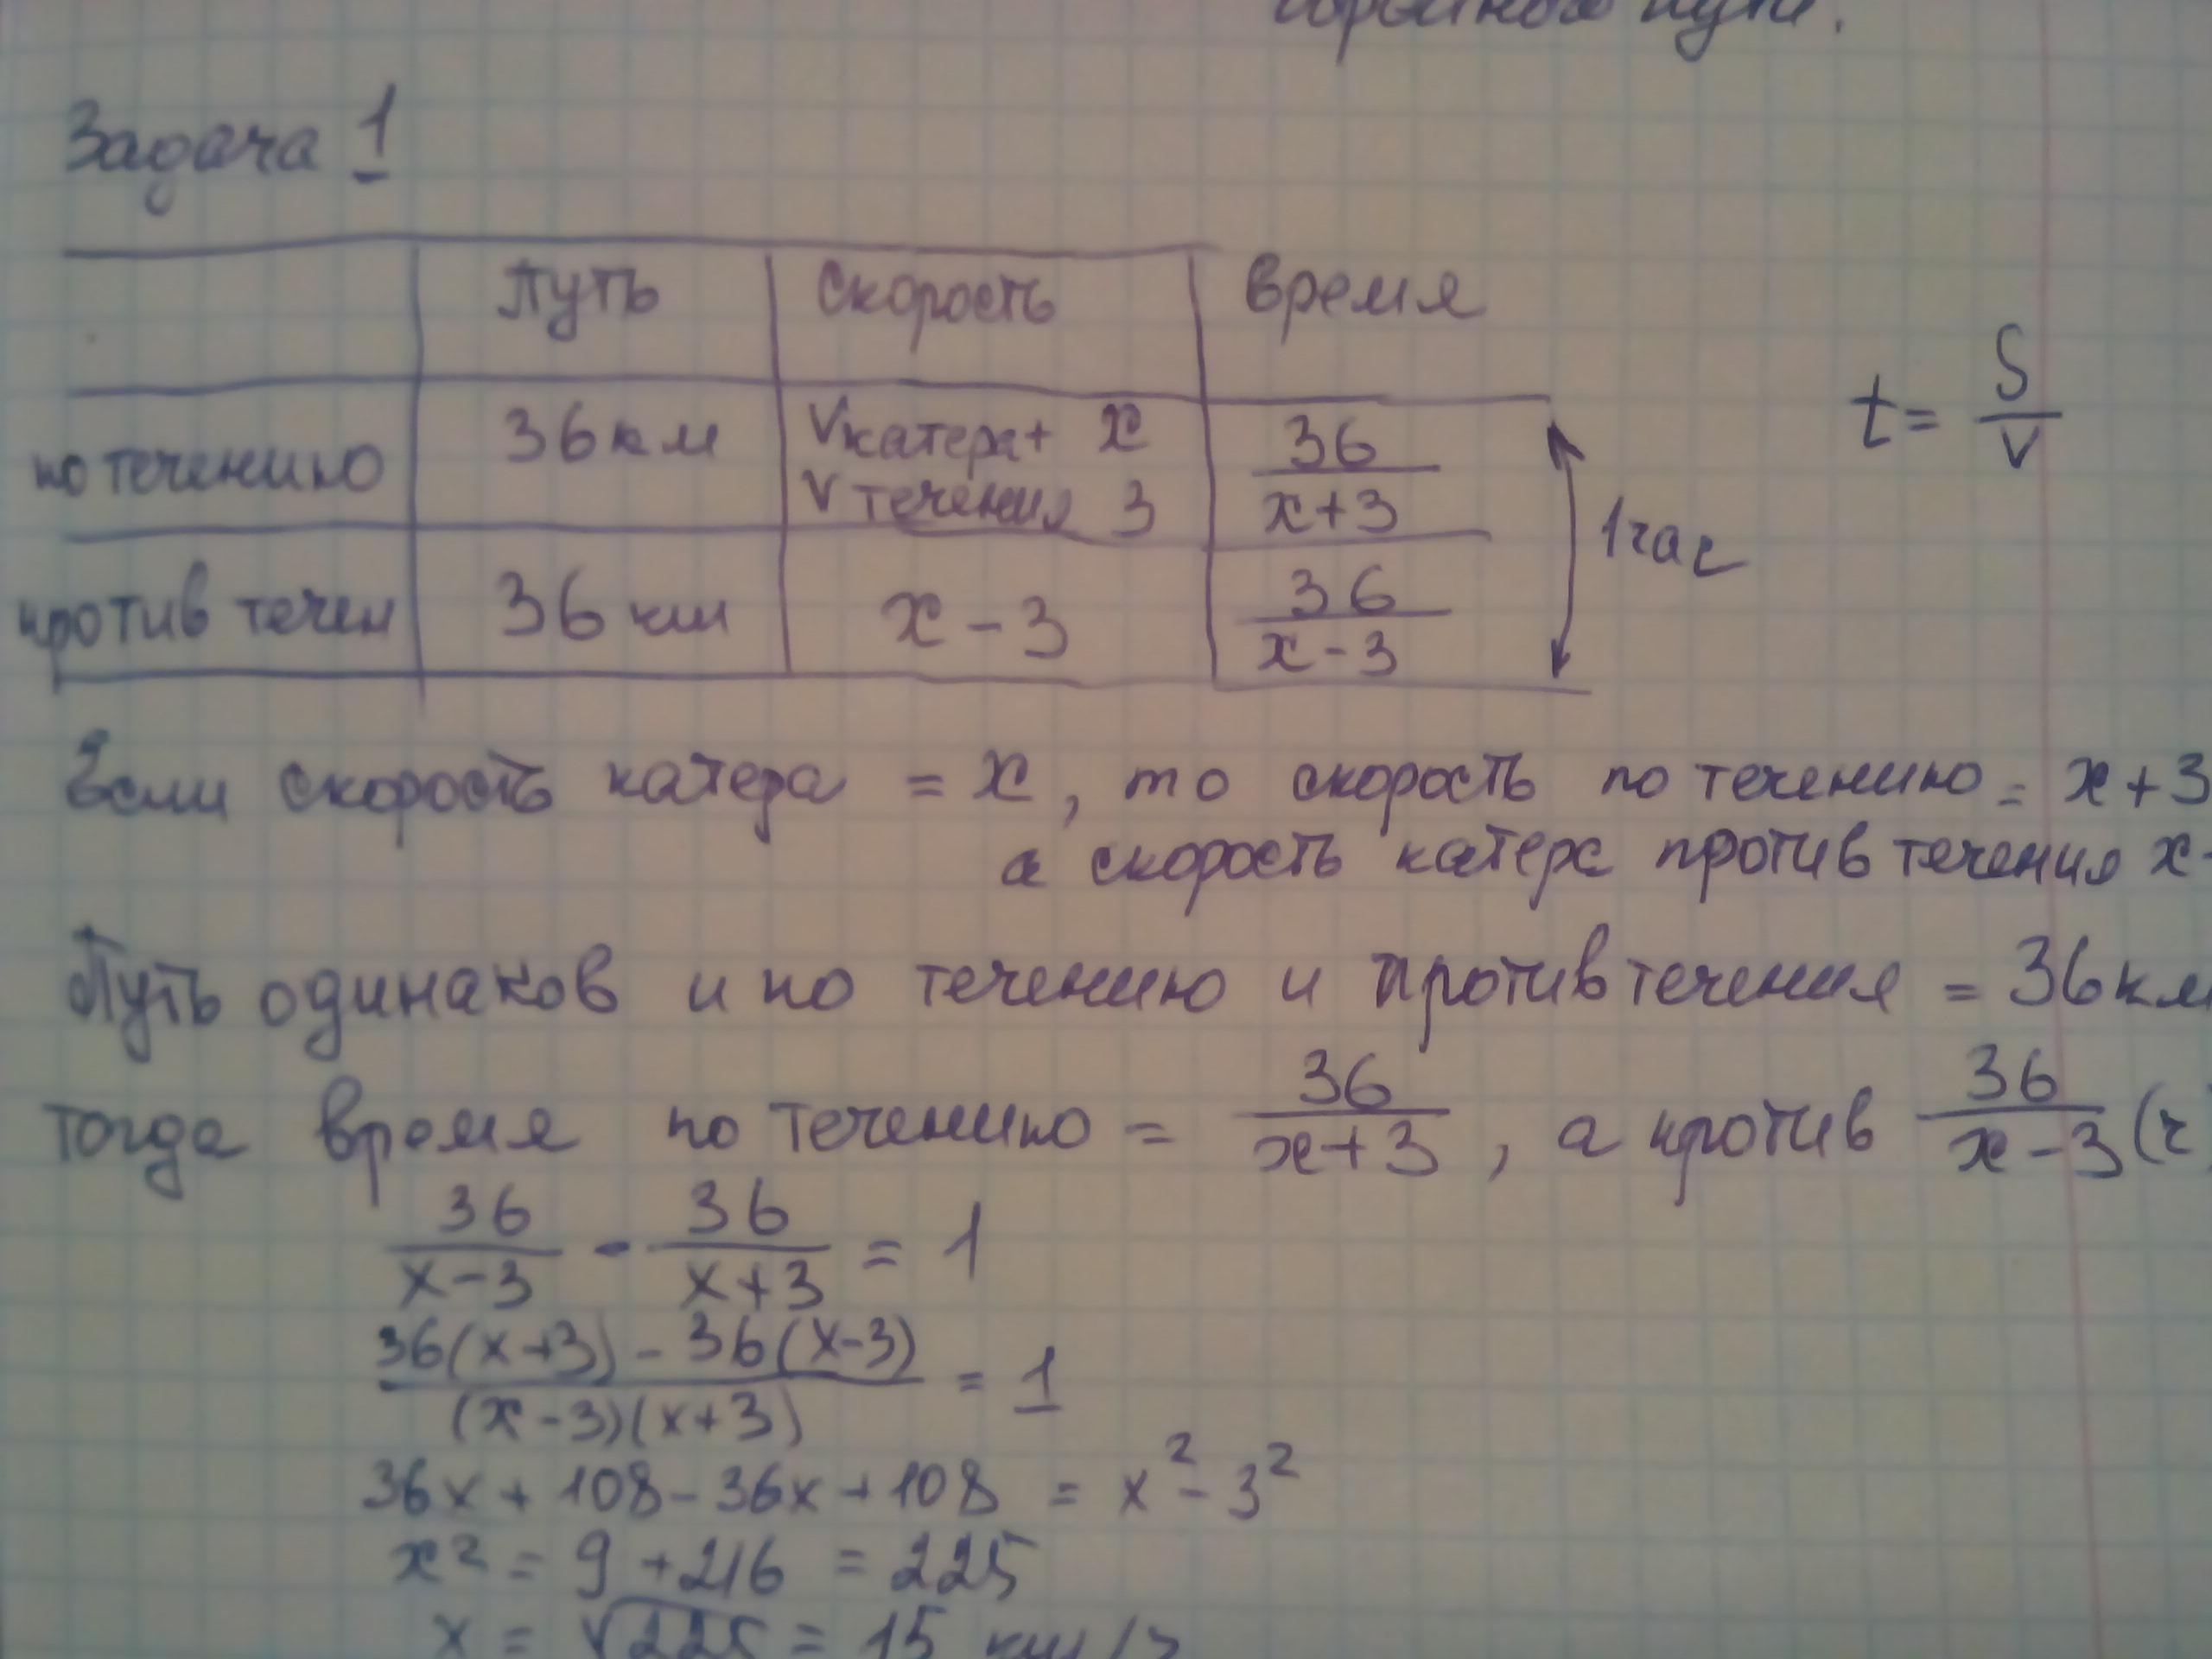 пути.
Задача 1
Путь Скорость время
по течению 36 км Vкатера+ x 36/(x+3)
Vтечения 3
t = S/V
1 час
против течен 36 км x - 3 36/(x-3)
Если скорость катера = x, то скорость по течению = x+3
а скорость катера против течения x-
Путь одинаков и по течению и против течения = 36км
тогда время по течению = 36/(x+3), а против 36/(x-3) (ч)
36/(x-3) - 36/(x+3) = 1
(36(x+3) - 36(x-3))/((x-3)(x+3)) = 1
36x + 108 - 36x + 108 = x² - 3²
x² = 9 + 216 = 225
x = √225 = 15 км/